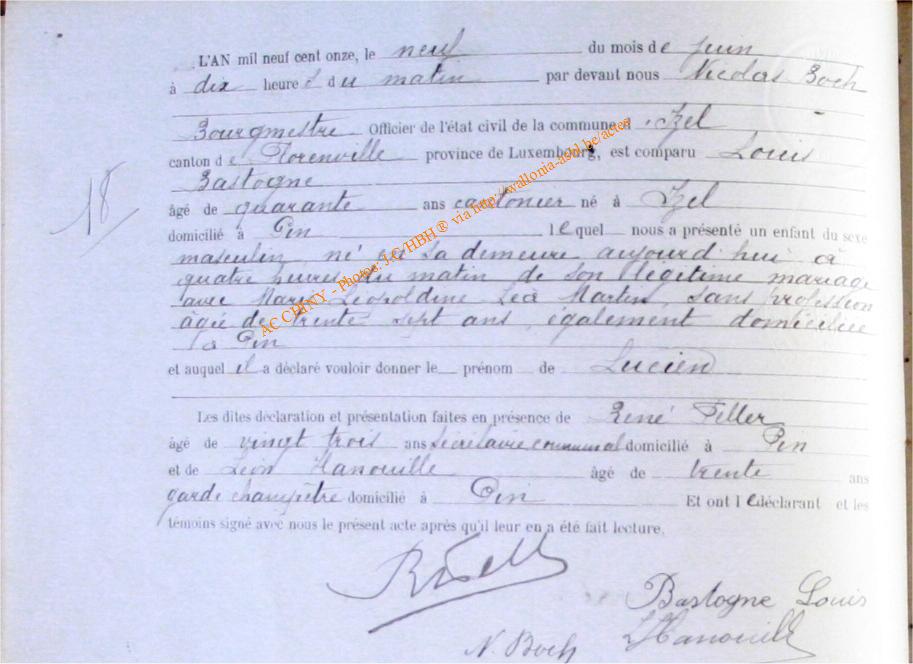 L'AN mil neuf cent onze, le neuf du mois de juin
à dix heures du matin par devant nous Nicolas Boch
Bourgmestre Officier de l'état civil de la commune d'Izel
canton de Florenville province de Luxembourg, est comparu Louis
Bastogne
âgé de quarante ans cantonier né à Izel
domicilié à Pin lequel nous a présenté un enfant du sexe
18
masculin, né en sa demeure aujourd'hui à
quatre heures du matin de son légitime mariage
avec Marie Léopoldine Léa Martin, sans profession
âgée de trente sept ans, également domiciliée
à Pin
et auquel il a déclaré vouloir donner le prénom de Lucien
Les dites déclaration et présentation faites en présence de René Feller
âgé de vingt trois ans secrétaire communal domicilié à Pin
et de Léon Hanouille âgé de trente ans
garde champêtre domicilié à Pin Et ont le déclarant et les
témoins signé avec nous le présent acte après qu'il leur en a été fait lecture.
Bastogne Louis
N. Boch
L Hanouille
AC CHINY - Photos: J.C/HBH ® via http://wallonia-asbl.be/actes